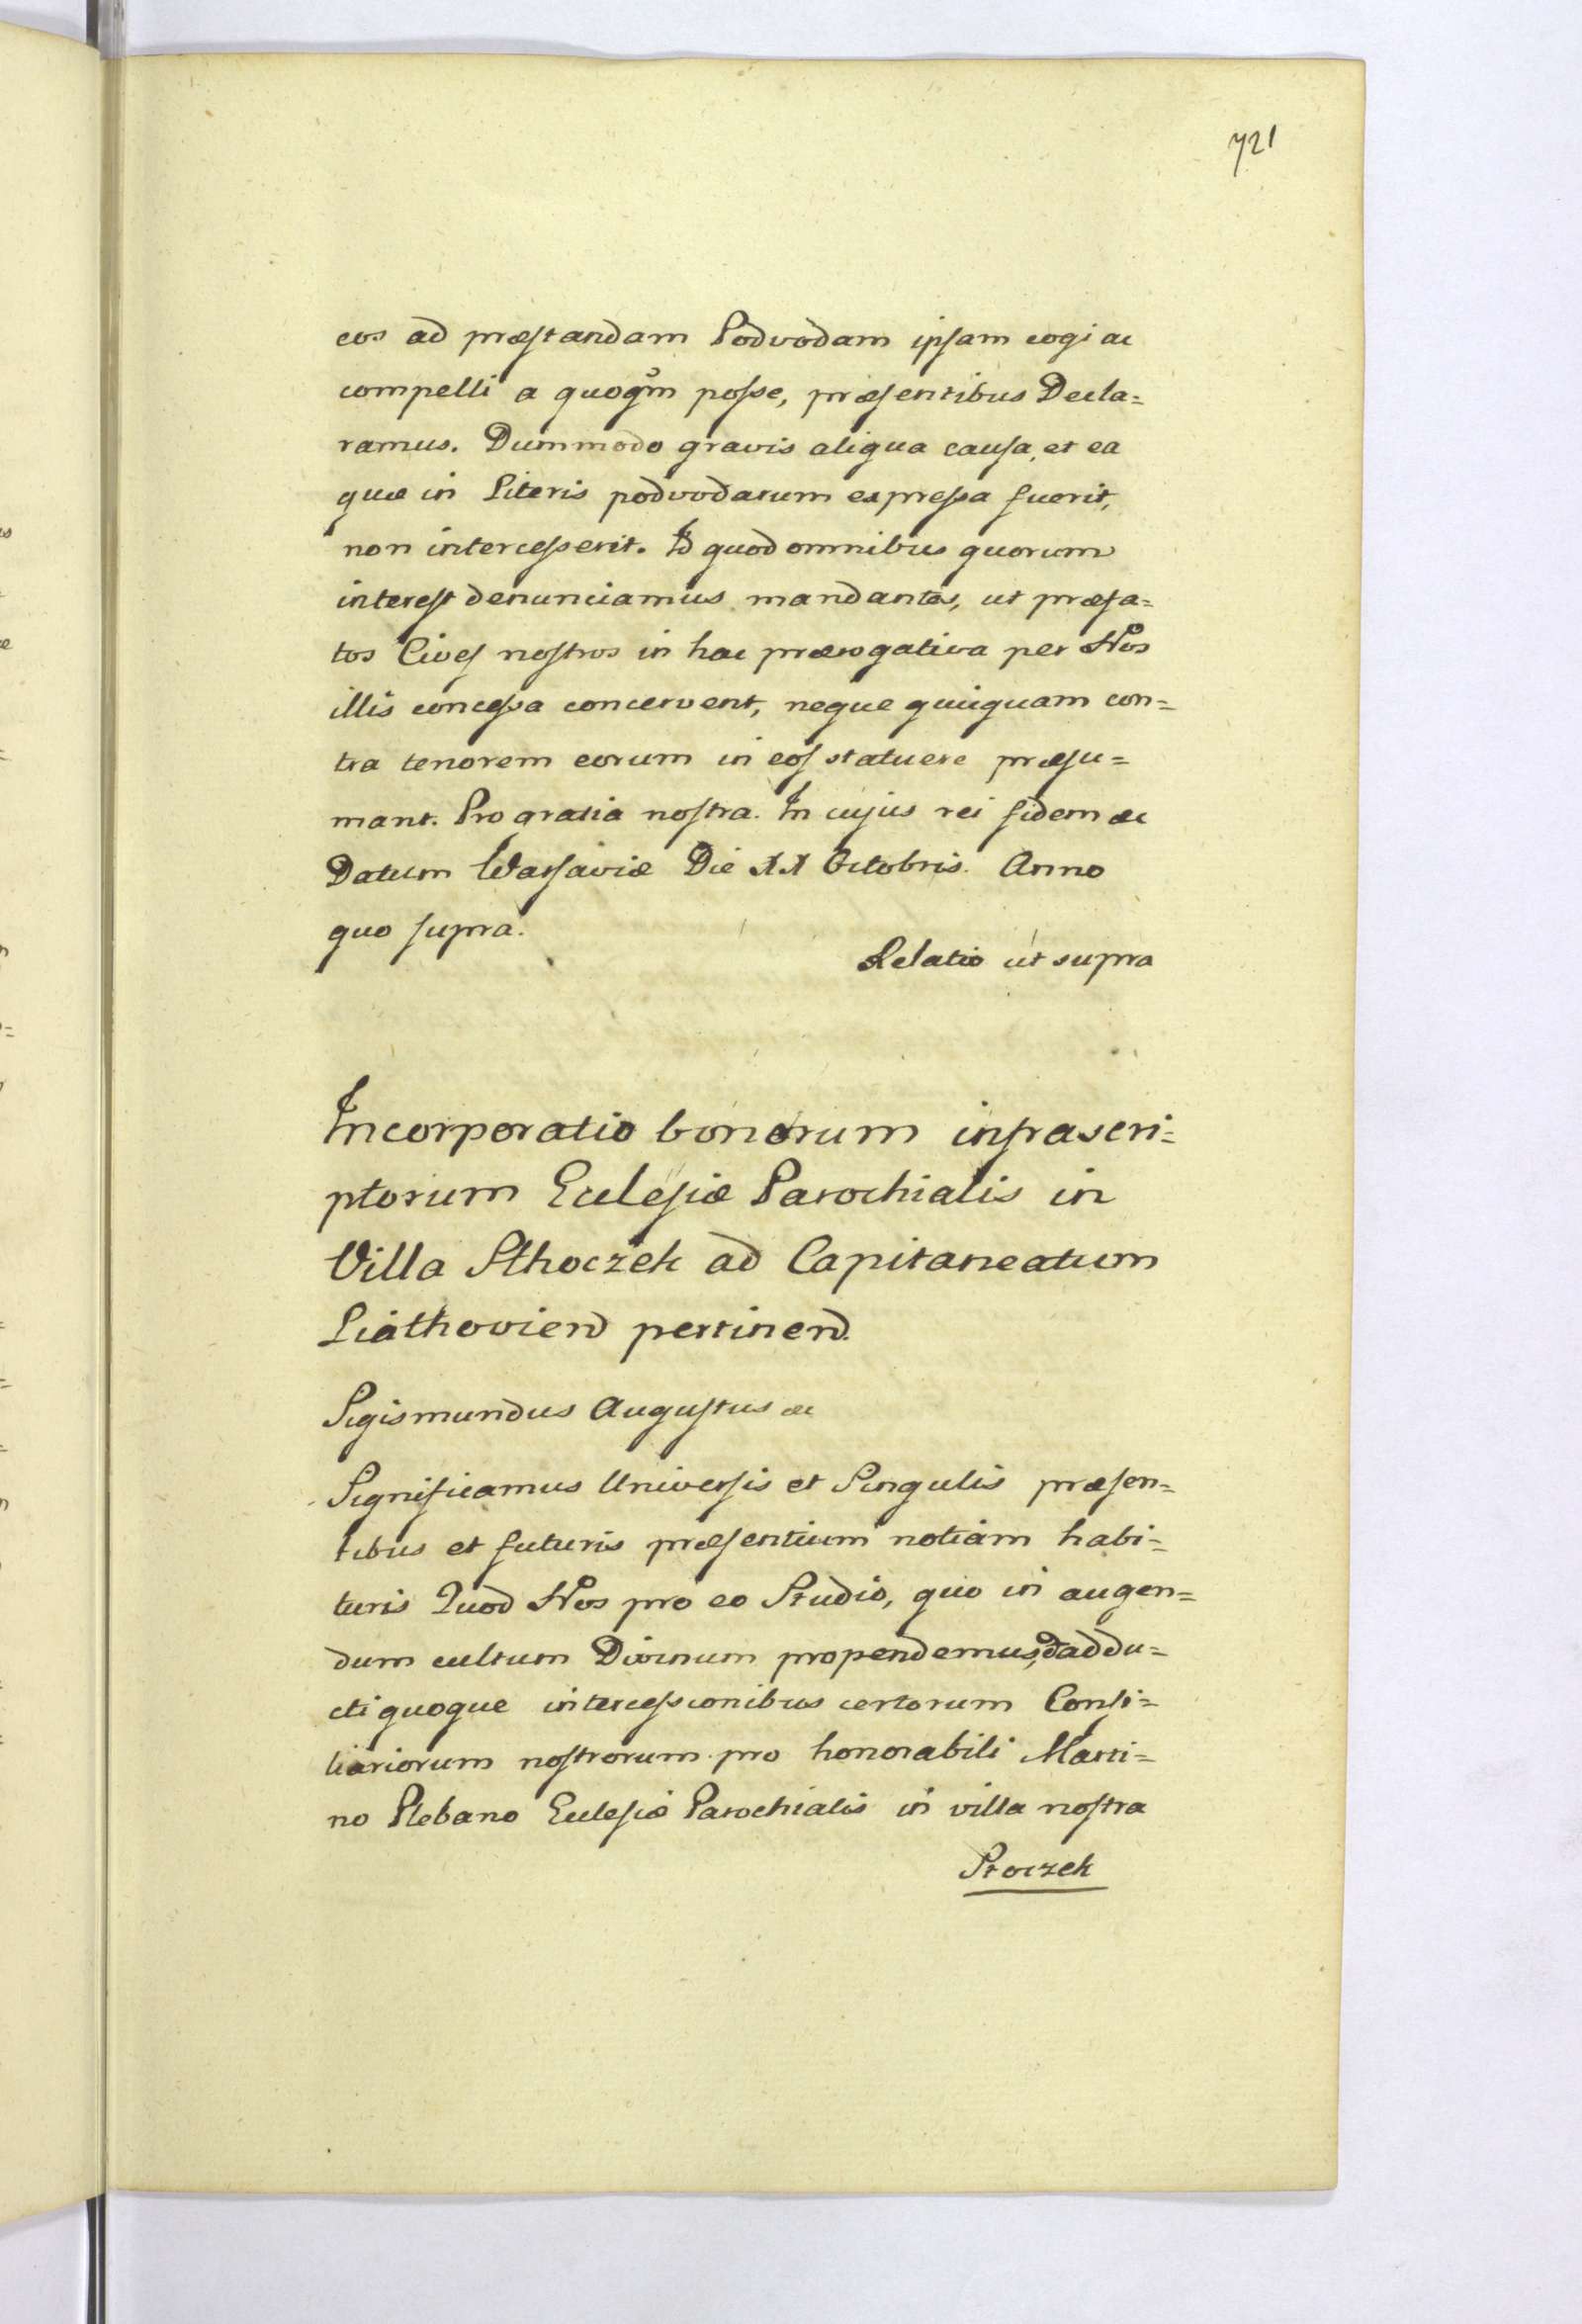 721
eos ad præstandam Podvodam ipsam cogi ac
compelli a quoqm posse, præsentibus Decla=
ramus. Dummodo gravis aliqua causa, et ea
quæ in Literis podvodarum expressa fuerit,
non intercesserit. Id quod omnibus quorum
interest denunciamus mandantes, ut præfa=
tos Cives nostros in hac prærogativa per Nos
illis concessa concervent, neque quicquam con=
tra tenorem eorum in eos statuere præsu=
mant. Pro gratia nostra. In cujus rei fidem &c
Datum Warsaviæ Die XX Octobris. Anno
quo supra.
Relatio ut supra
Incorporatio bonorum infrascri=
ptorum Eclesiæ Parochialis in
Villa Sthoczek ad Capitaneatum
Liathoviend pertinend.
Sigismundus Augustus &c
Significamus Universis et Singulis præsen=
tibus et futuris præsentium notiam habi=
turis Quod Nos pro eo Studio, quo in augen=
dum cultum Divinum propendemus, addu=
cti quoque intercessionibus certorum Consi=
liariorum nostrorum pro honorabili Marti=
no Plebano Eclesiæ Parochialis in villa nostra
Stoczek